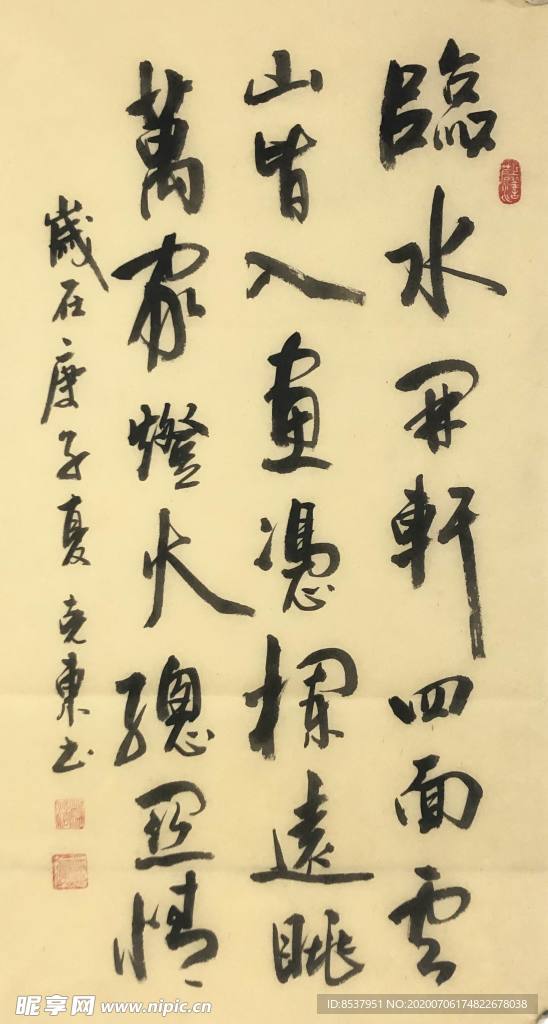 臨水開軒四面云
山皆入畫憑欄遠眺
萬家燈火總關情
歲在庚子夏克東书
昵享网 www.nipic.cn
ID:8537951 NO:20200706174822678038